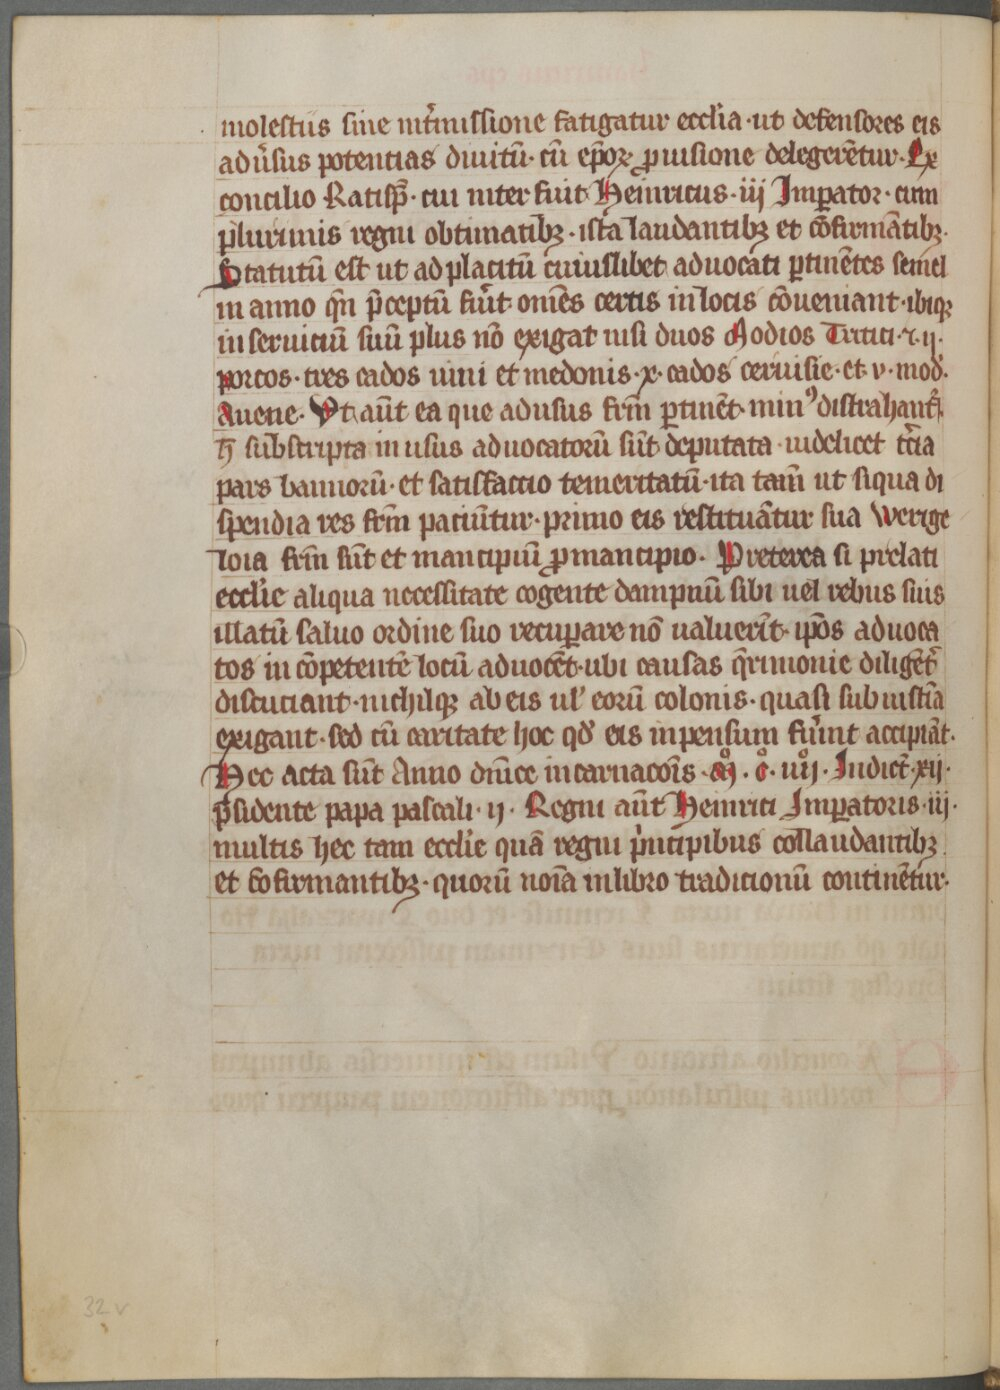 molestiis sine int̄missione fatigatur ecclīa · ut defensores eis
adūsus potentias diuitū · cū ep̄oꝝ ꝓuisione delegerētur · Ex
concilio Ratisp̄ · cui inter fuit Heinricus · iij Imꝑator · cum
plurimis regni obtimatibꝫ · istā laudantibꝫ et cōfirmātibꝫ ·
Statutū est ut ad placitū cuiuslibet aduocati ꝑtinētes semel
in anno qn̄ p̄ceptū fuīt om̄es certis in locis cōueniant · ibiqꝫ
in seruiciū suū plus nō exigat nisi duos Modios Tritici · ⁊ · ij ·
porcos · tres cados uini et medonis · x · cados ceruisie · et v · mod̄ ·
Auene · Vt aūt ea que ad usus frm̄ ꝑtinēt · minꝰ distrahant᷑ ·
h̄ subscripta in usus aduocatorū sūt deputata · uidelicet tc̄ia
pars bannorū · et satisfactio temeritatū · ita tam̄ ut siqua di
spendia res frm̄ paciūtur · primo eis restituātur sua Werige
loia frm̄ sūt et mancipiū ꝓ mancipio · Preterea si prelati
ecclīe aliqua necessitate cogente dampnū sibi uel rebus suis
illatū saluo ordine suo recuꝑare nō ualuerīt · ip̄os aduoca
tos in cōpetentē locū aduocēt · ubi causas q̄rimonie diligēt᷑
discuciant · nichilqꝫ ab eis ul̄ eorū colonis · quasi sub iustīa
exigant · sed cū caritate hoc qd̄ eis inpensum fuīint accipiāt ·
Hec acta sūt Anno dn̄ice incarnacōis · Mͦ · Cͦ · iiijͦ · Indict̄ · xij ·
p̄sidente papa pascali · ij · Regni aūt Heinrici Imꝑatoris · iij ·
multis hec tam ecclīe quā regni p̄ncipibus collaudantibꝫ
et cōfirmantibꝫ · quorū noīa in libro tradicionū continētur ·
32 v